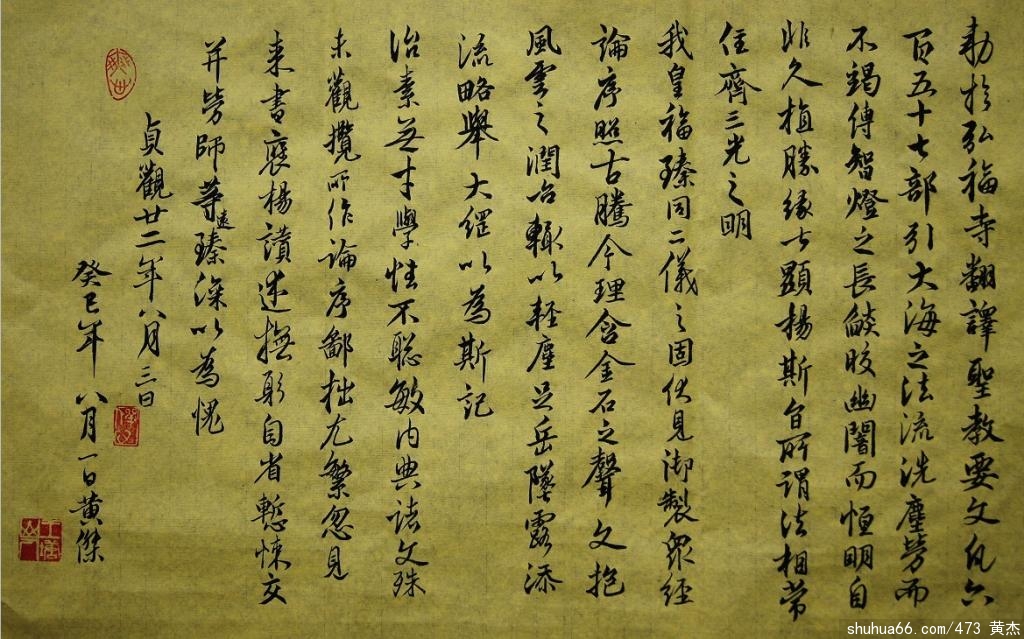 勅於弘福寺翻譯聖教要文凡六
百五十七部引大海之法流洗塵勞而
不竭傳智燈之長燄皎幽闇而恒明自
非久植勝緣何以顯揚斯旨所謂法相常
住齊三光之明
我皇福臻同二儀之固伏見御製衆經
論序照古騰今理含金石之聲文抱
風雲之潤治輒以輕塵足岳墜露添
流略舉大綱以為斯記
治素無才學性不聰敏内典諸文殊
未觀攬所作論序鄙拙尤繁忽見
来書褒揚讃述撫躬自省慙悚交
并勞師等遠臻深以為愧
貞觀廿二年八月三日
癸巳年八月一日黄傑
shuhua66.com/473 黄杰